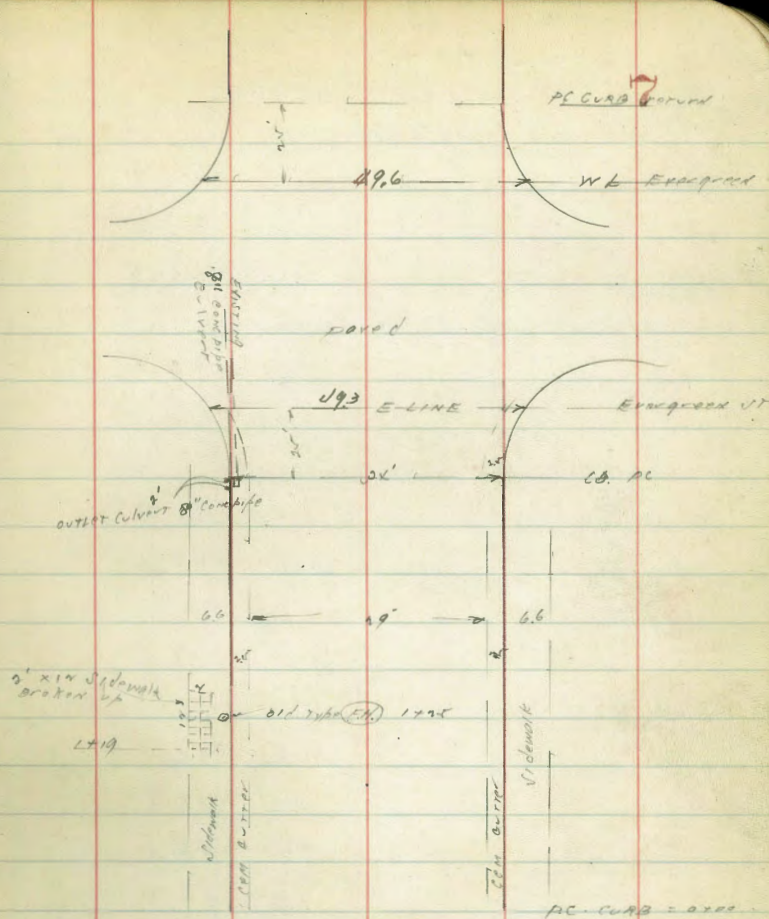 7
PC CURB return
25'
49.6
W L Evergreen
Existing
8" Conc pipe
paved
49.3 E-LINE
Evergreen ST
25'
24'
CB. PC
2'
outlet culvert 8" Conc pipe
6.6
19'
6.6
2' x 12 Sidewalk
Broken up
Old Type F.H. 1+25
1+19
Sidewalk
Sidewalk
CEM Gutter
CEM Gutter
PC. CURB = 0+00